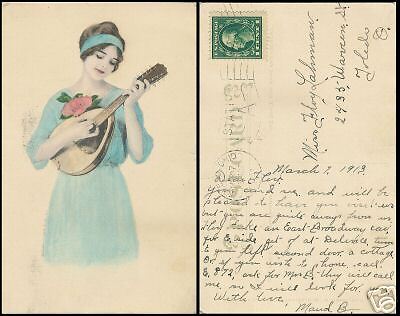 Miss Floy Lahman
2435 Warren St
Toledo
O.
March 7, 1913.
Floy
Your card rec. and will be
pleased to have you visit us
but you are quite away from us
Floy take an East Broadway car,
for E. side get of at
left, second door, a cottage
Or if you wish to phone, call
E, 872, ask for Mrs B- they will call
me, so I will look for
With love,
Maud B.